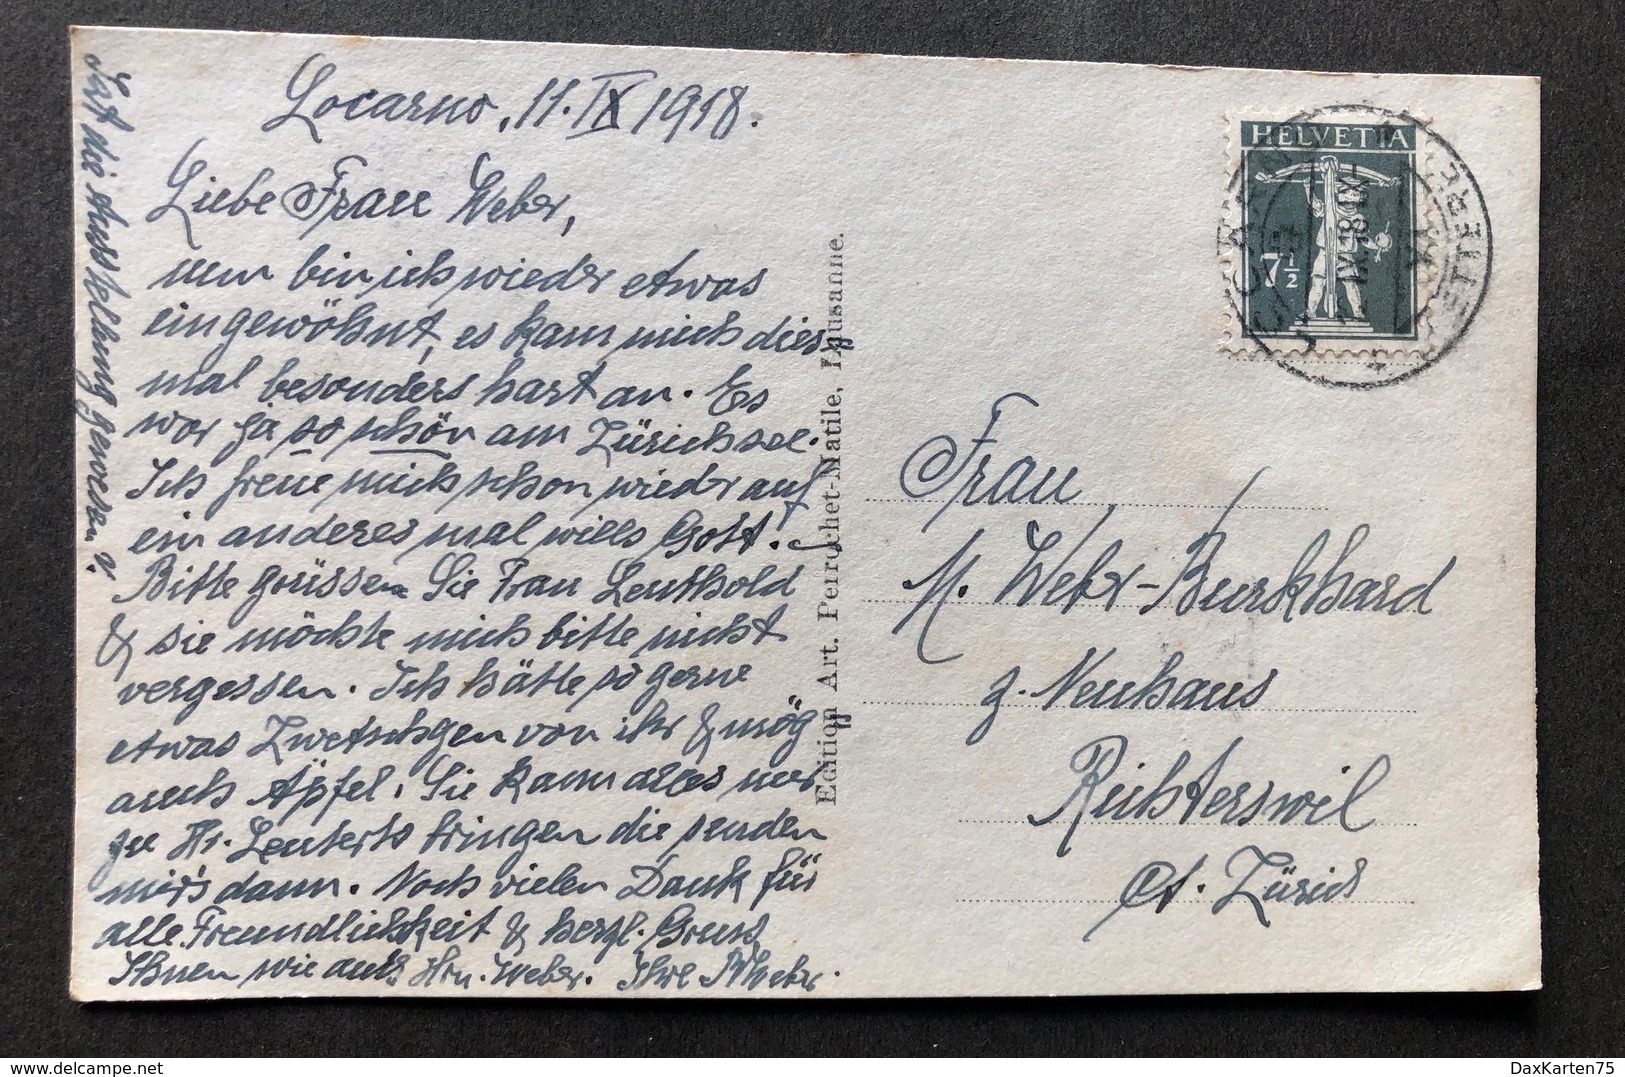 Locarno, 11. IX 1918.
Liebe Frau Weber,
nun bin ich wieder etwas
eingewöhnt, es kam mich dies
mal besonders hart an. Es
war ja so schön am Zürichsee.
Ich freue mich schon wieder auf
ein anderes mal wills Gott.
Bitte grüssen Sie Frau Leuthold
& sie möchte mich bitte nicht
vergessen. Ich hätte so gerne
etwas Zwetschgen von ihr & mög
auch Äpfel. Sie kann alles nur
zu Hr. bringen die senden
mir's dann. Noch vielen Dank für
alle Freundlichkeit & herzl. Gruss
Ihnen wie auch Hrn. Weber. Ihre
die Ausstellung gewesen?
Edition Art. Perrochet-Matile, Lausanne.
HELVETIA
7½
LOCARNO
LETTERE
IX.18
Frau
M. Weber-Burkhard
z. Neuhaus
Richterswil
Ct. Zürich
DaxKarten75